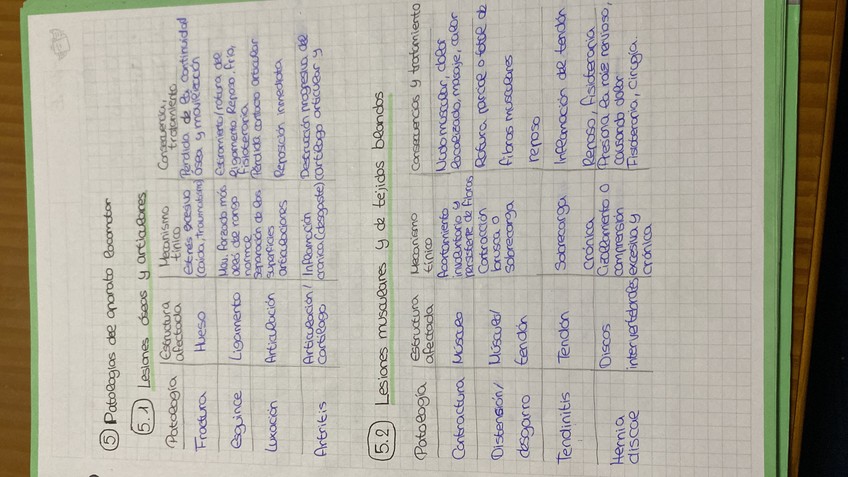 5 Patologías del aparato locomotor
5.1 Lesiones óseas y articulares
Patología | Estructura afectada | Mecanismo típico | Consecuencia, tratamiento
Fractura | Hueso | Estrés excesivo (caída, traumatismo) | Pérdida de la continuidad ósea y movilización
Esguince | Ligamento | Mov. forzado más allá del rango normal | Estiramiento/rotura de ligamento Reposo, frío, fisioterapia
Luxación | Articulación | Separación de las superficies articulaciones | Pérdida contacto articular Reposición inmediata
Artritis | Articulación/ cartílago | Inflamación crónica (desgaste) | Destrucción progresiva del cartílago articular y
5.2 Lesiones musculares y de tejidos blandos
Patología | Estructura afectada | Mecanismo típico | Consecuencias y tratamiento
Contractura | Músculo | Acortamiento involuntario y persistente de fibras | Nudo muscular, dolor localizado, masaje, calor
Distensión/ desgarro | Músculo/ tendón | Contracción brusca o sobrecarga | Rotura parcial o total de fibras musculares reposo
Tendinitis | Tendón | Sobrecarga crónica | Inflamación del tendón Reposo, fisioterapia
Hernia discal | Discos intervertebrales | o comprensión excesiva y crónica | Presiona la raíz nervioso, causando dolor Fisioterapia, cirugía.